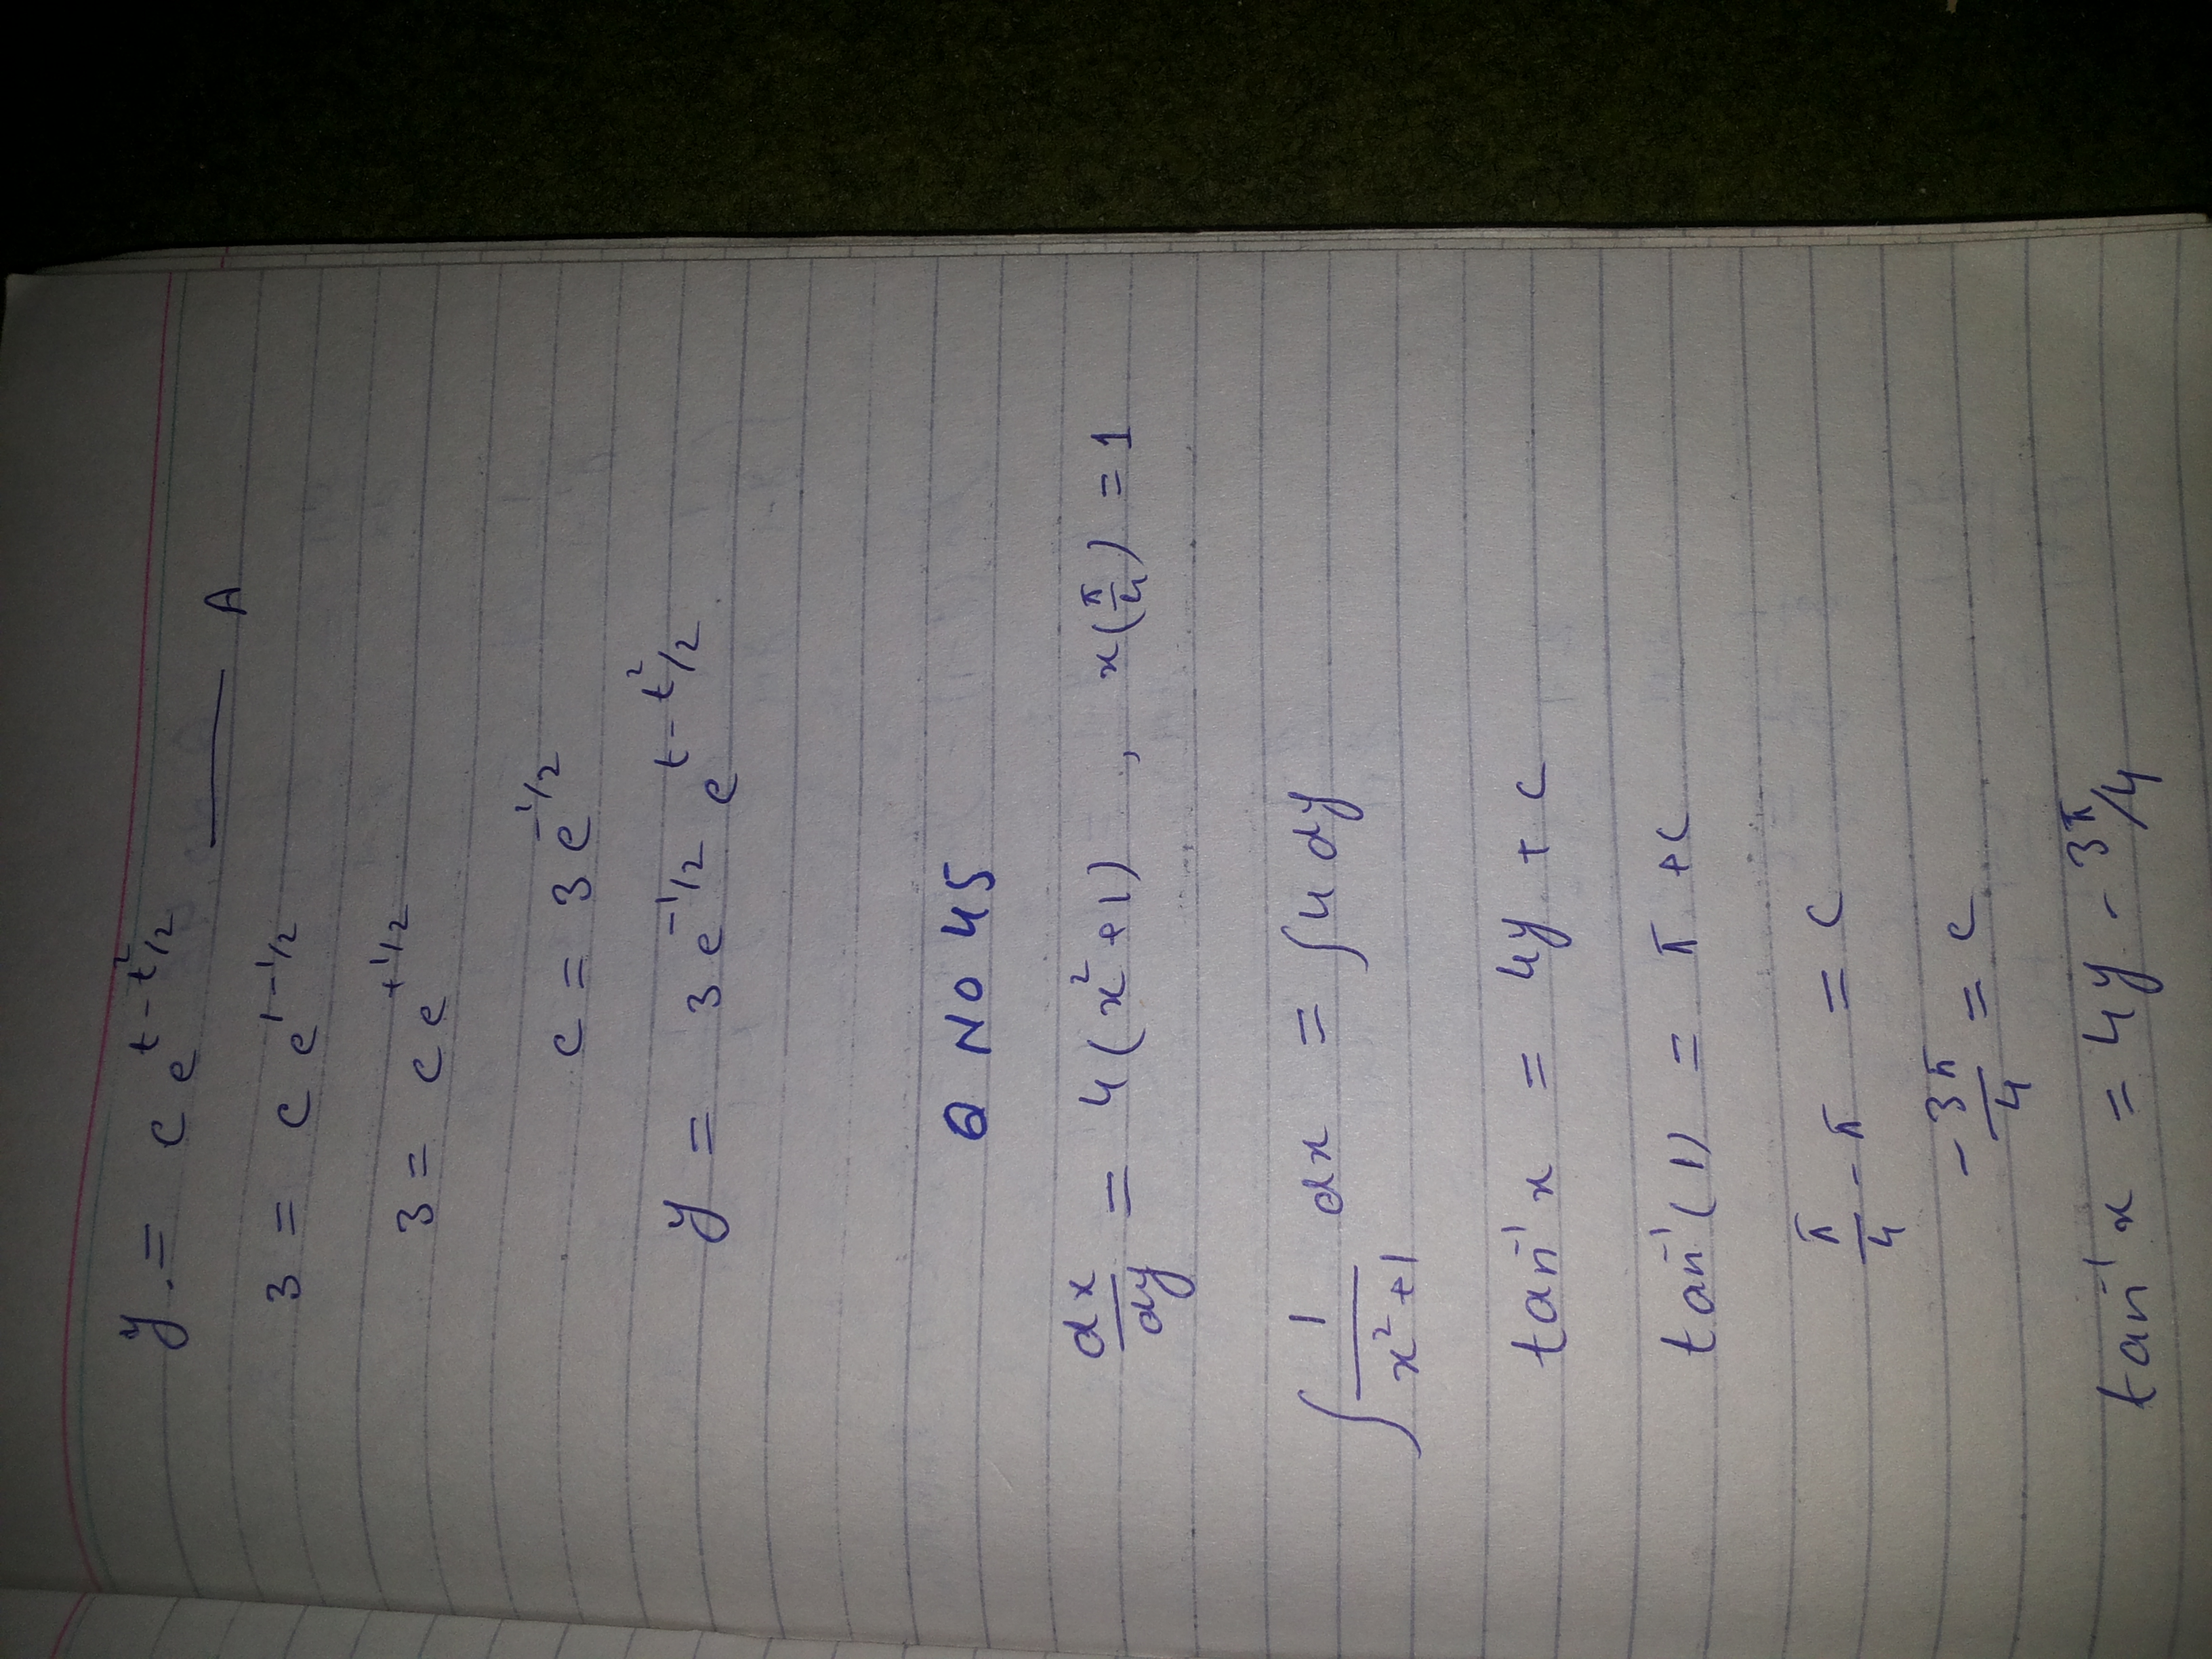 y = c e^{t - t²/2} ——— A
3 = c e^{1 - 1/2}
3 = c e^{+1/2}
c = 3 e^{-1/2}
y = 3 e^{-1/2} e^{t - t²/2}
Q NO 45
dx/dy = 4(x² + 1) , x(π/4) = 1
∫ 1/(x² + 1) dx = ∫ 4 dy
tan⁻¹ x = 4y + c
tan⁻¹(1) = π + c
π/4 - π = c
-3π/4 = c
tan⁻¹ x = 4y - 3π/4